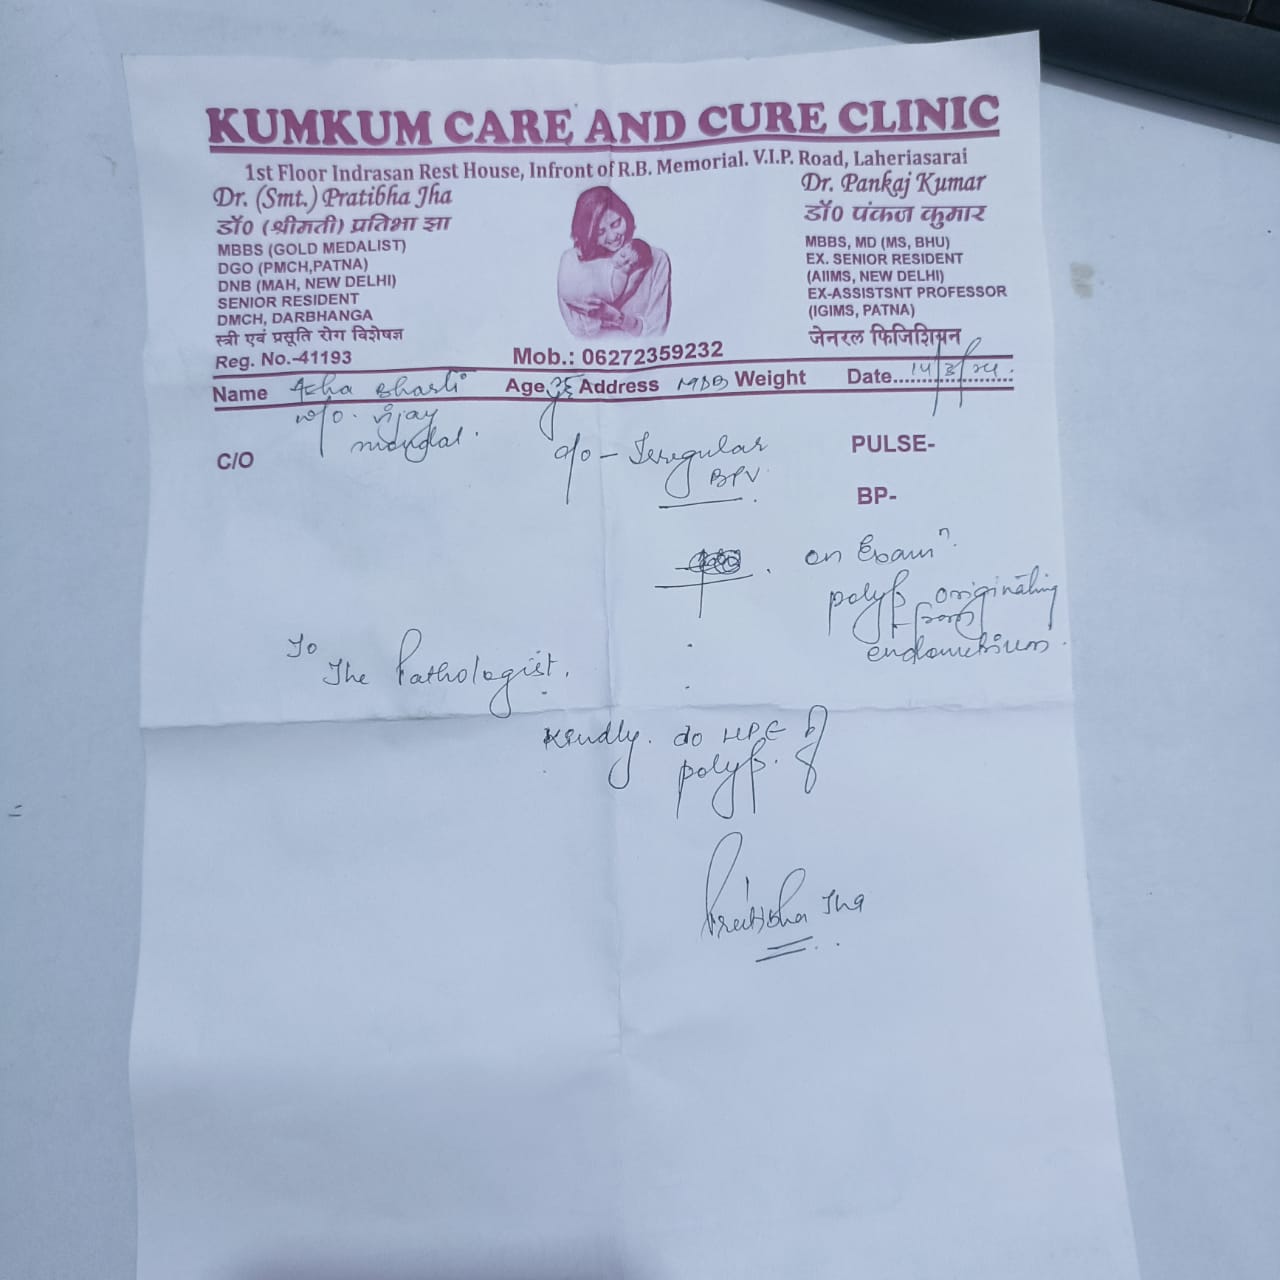 KUMKUM CARE AND CURE CLINIC
1st Floor Indrasan Rest House, Infront of R.B. Memorial. V.I.P. Road, Laheriasarai
Dr. (Smt.) Pratibha Jha
डॉ० (श्रीमती) प्रतिभा झा
MBBS (GOLD MEDALIST)
DGO (PMCH,PATNA)
DNB (MAH, NEW DELHI)
SENIOR RESIDENT
DMCH, DARBHANGA
स्त्री एवं प्रसूति रोग विशेषज्ञ
Reg. No.-41193
Dr. Pankaj Kumar
डॉ० पंकज कुमार
MBBS, MD (MS, BHU)
EX. SENIOR RESIDENT
(AIIMS, NEW DELHI)
EX-ASSISTSNT PROFESSOR
(IGIMS, PATNA)
जेनरल फिजिशियन
Mob.: 06272359232
Name Asha Bharti Age Address MDB Weight Date
w/o. Vijay
mandal.
C/O
c/o - Irregular
BPV
PULSE-
BP-
on Examⁿ.
polyp originating
from
endometrium.
To
The Pathologist.
Kindly. do HPE of
polyp.
Pratibha Jha